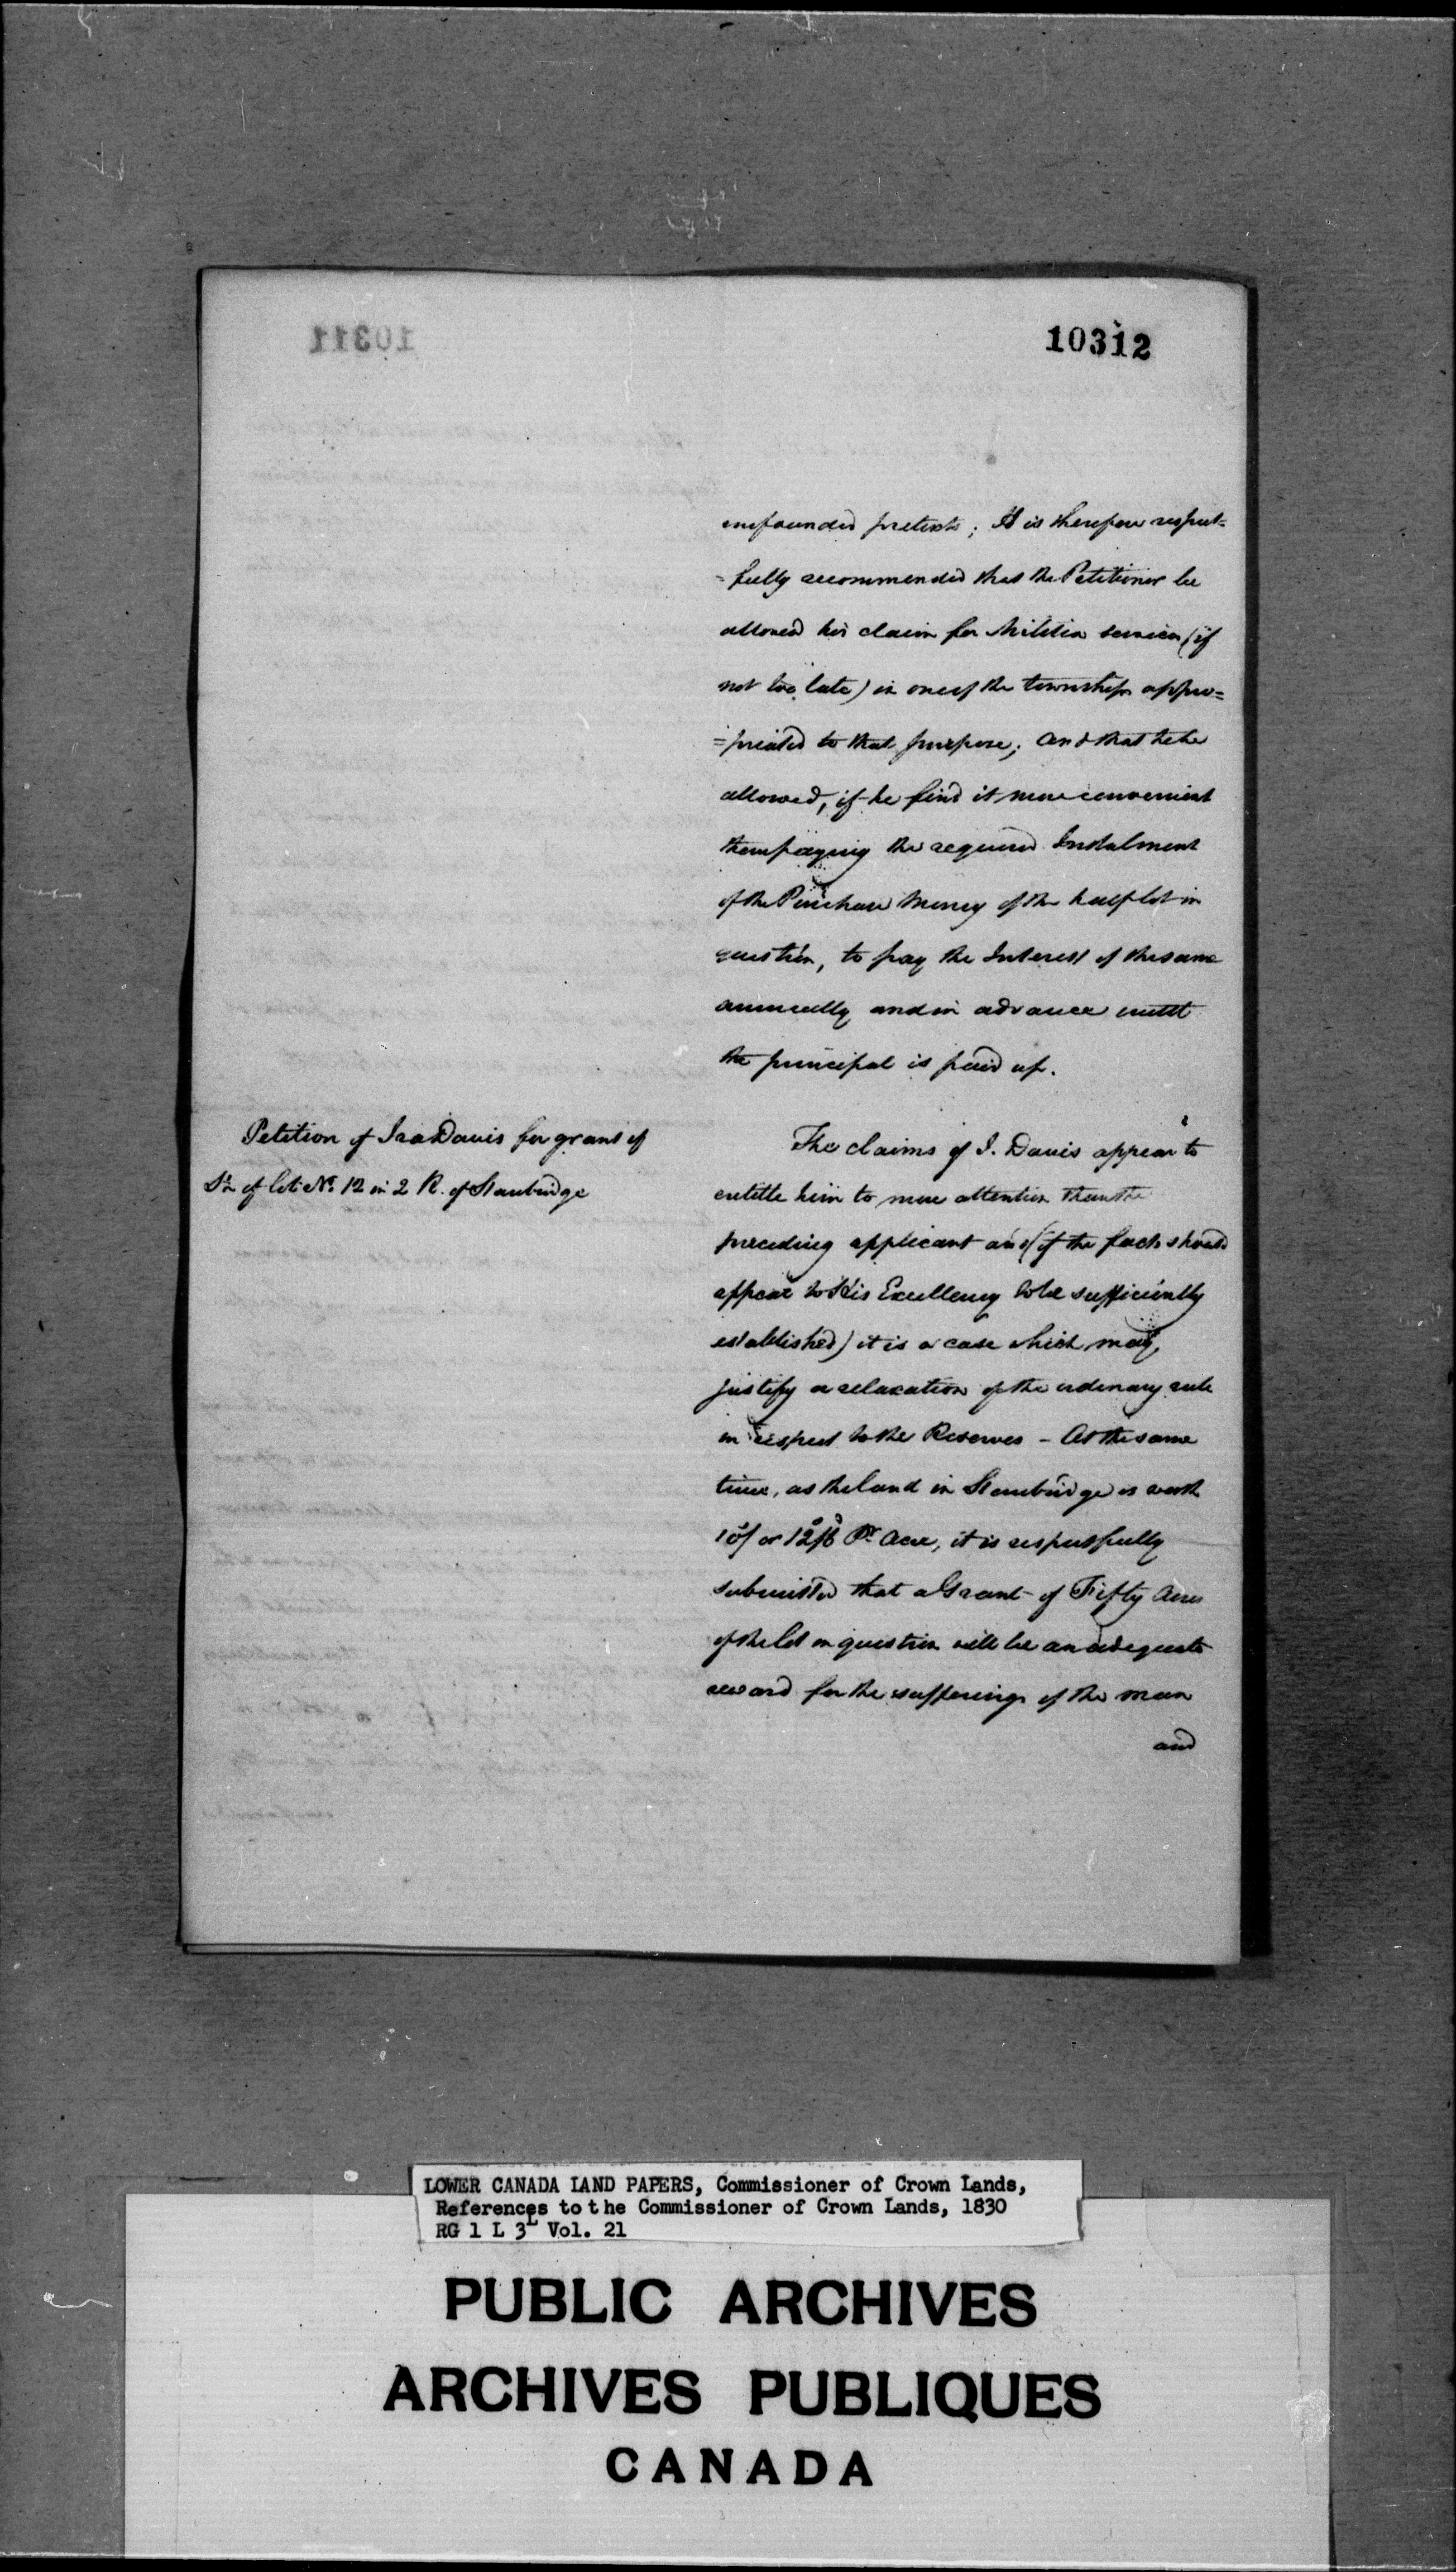 10312
unfounded pretexts; It is therefore respect=
=fully recommended that the Petitioner be
allowed his claim for Militia services (if
not too late) in one of the townships appro=
=priated to that purpose; and that he be
allowed, if he find it more convenient
than paying the required Instalment
of the Purchase Money of the half lot in
question, to pay the Interest of the same
annually and in advance until
the principal is paid up.
Petition of Ira Davis for grant of
of lot No. 12 in 2 R. of Stanbridge
The claims of I. Davis appear to
entitle him to more attention than the
preceding applicant and (if the facts should
appear to His Excellency to be sufficiently
established) it is a case which may
justify a relaxation of the ordinary rule
in respect to the Reserves - At the same
time, as the land in Stanbridge is worth
10/ or 12/6 Pr Acre, it is respectfully
submitted that a Grant of Fifty Acres
of the lot in question will be an adequate
reward for the sufferings of the man
and
LOWER CANADA LAND PAPERS, Commissioner of Crown Lands,
References to the Commissioner of Crown Lands, 1830
RG 1 L 3L Vol. 21
PUBLIC ARCHIVES
ARCHIVES PUBLIQUES
CANADA